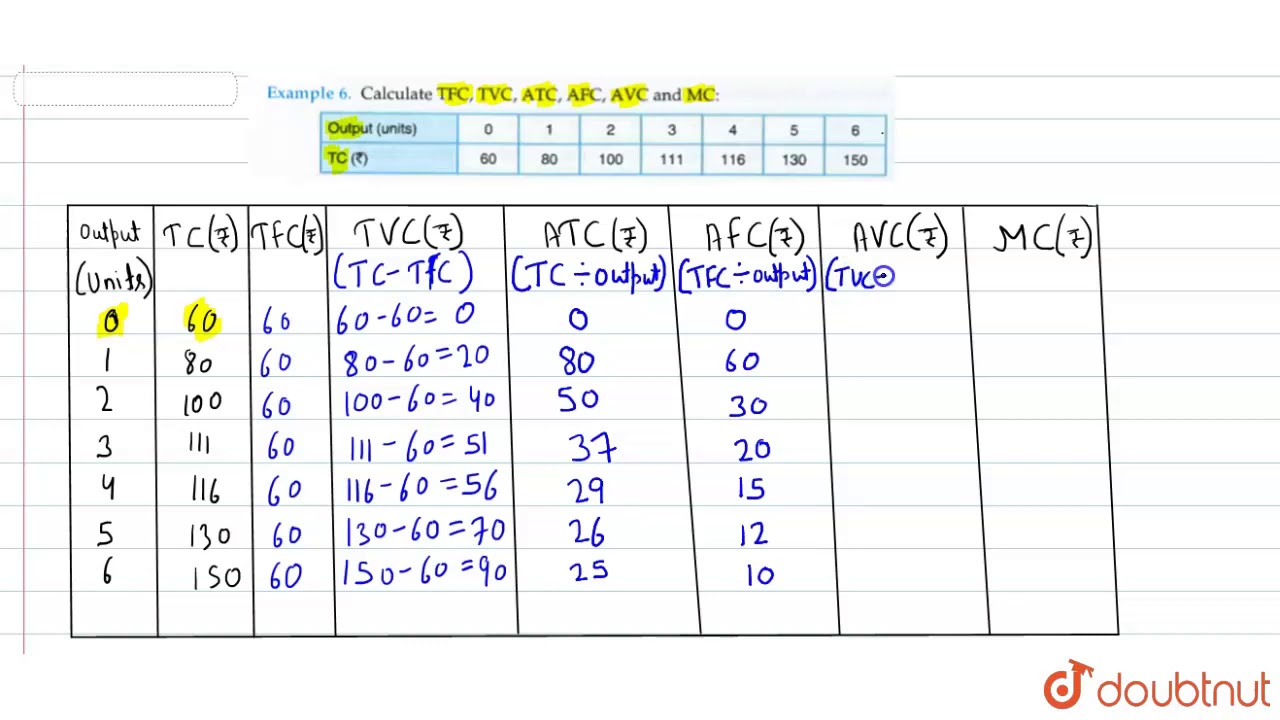 Example 6. Calculate TFC, TVC, ATC, AFC, AVC and MC:
Output (units) 0 1 2 3 4 5 6
TC (₹) 60 80 100 111 116 130 150
Output (Units) TC(₹) TFC(₹) TVC(₹) ATC(₹) AFC(₹) AVC(₹) MC(₹)
(TC - TFC) (TC ÷ output) (TFC ÷ output) (TVC÷
0 60 60 60-60= 0 0 0
1 80 60 80-60=20 80 60
2 100 60 100-60=40 50 30
3 111 60 111-60=51 37 20
4 116 60 116-60=56 29 15
5 130 60 130-60=70 26 12
6 150 60 150-60=90 25 10
doubtnut